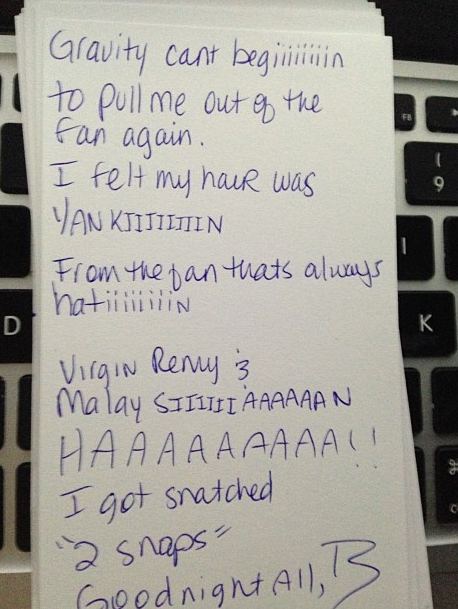 Gravity cant begiiiiiiiin
to pull me out of the
fan again.
I felt my hair was
YANKIIIIIIIIN
From the fan thats always
hatiiiiiiiiin
Virgin Remy &
Malay SIIIIIIAAAAAAN
HAAAAAAAAAA!!
I got snatched
"2 snaps"
Goodnight All, B
F8
(
9
I
D
K
⌘